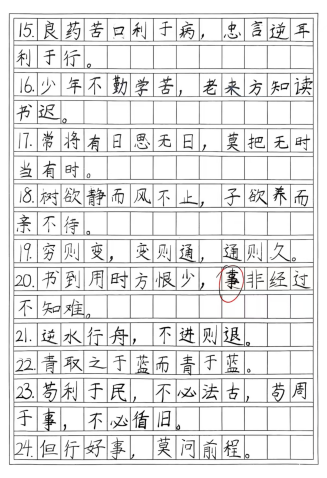 15.良药苦口利于病，忠言逆耳
利于行。
16.少年不勤学苦，老来方知读
书迟。
17.常将有日思无日，莫把无时
当有时。
18.树欲静而风不止，子欲养而
亲不待。
19.穷则变，变则通，通则久。
20.书到用时方恨少，事非经过
不知难。
21.逆水行舟，不进则退。
22.青取之于蓝而青于蓝。
23.苟利于民，不必法古，苟周
于事，不必循旧。
24.但行好事，莫问前程。